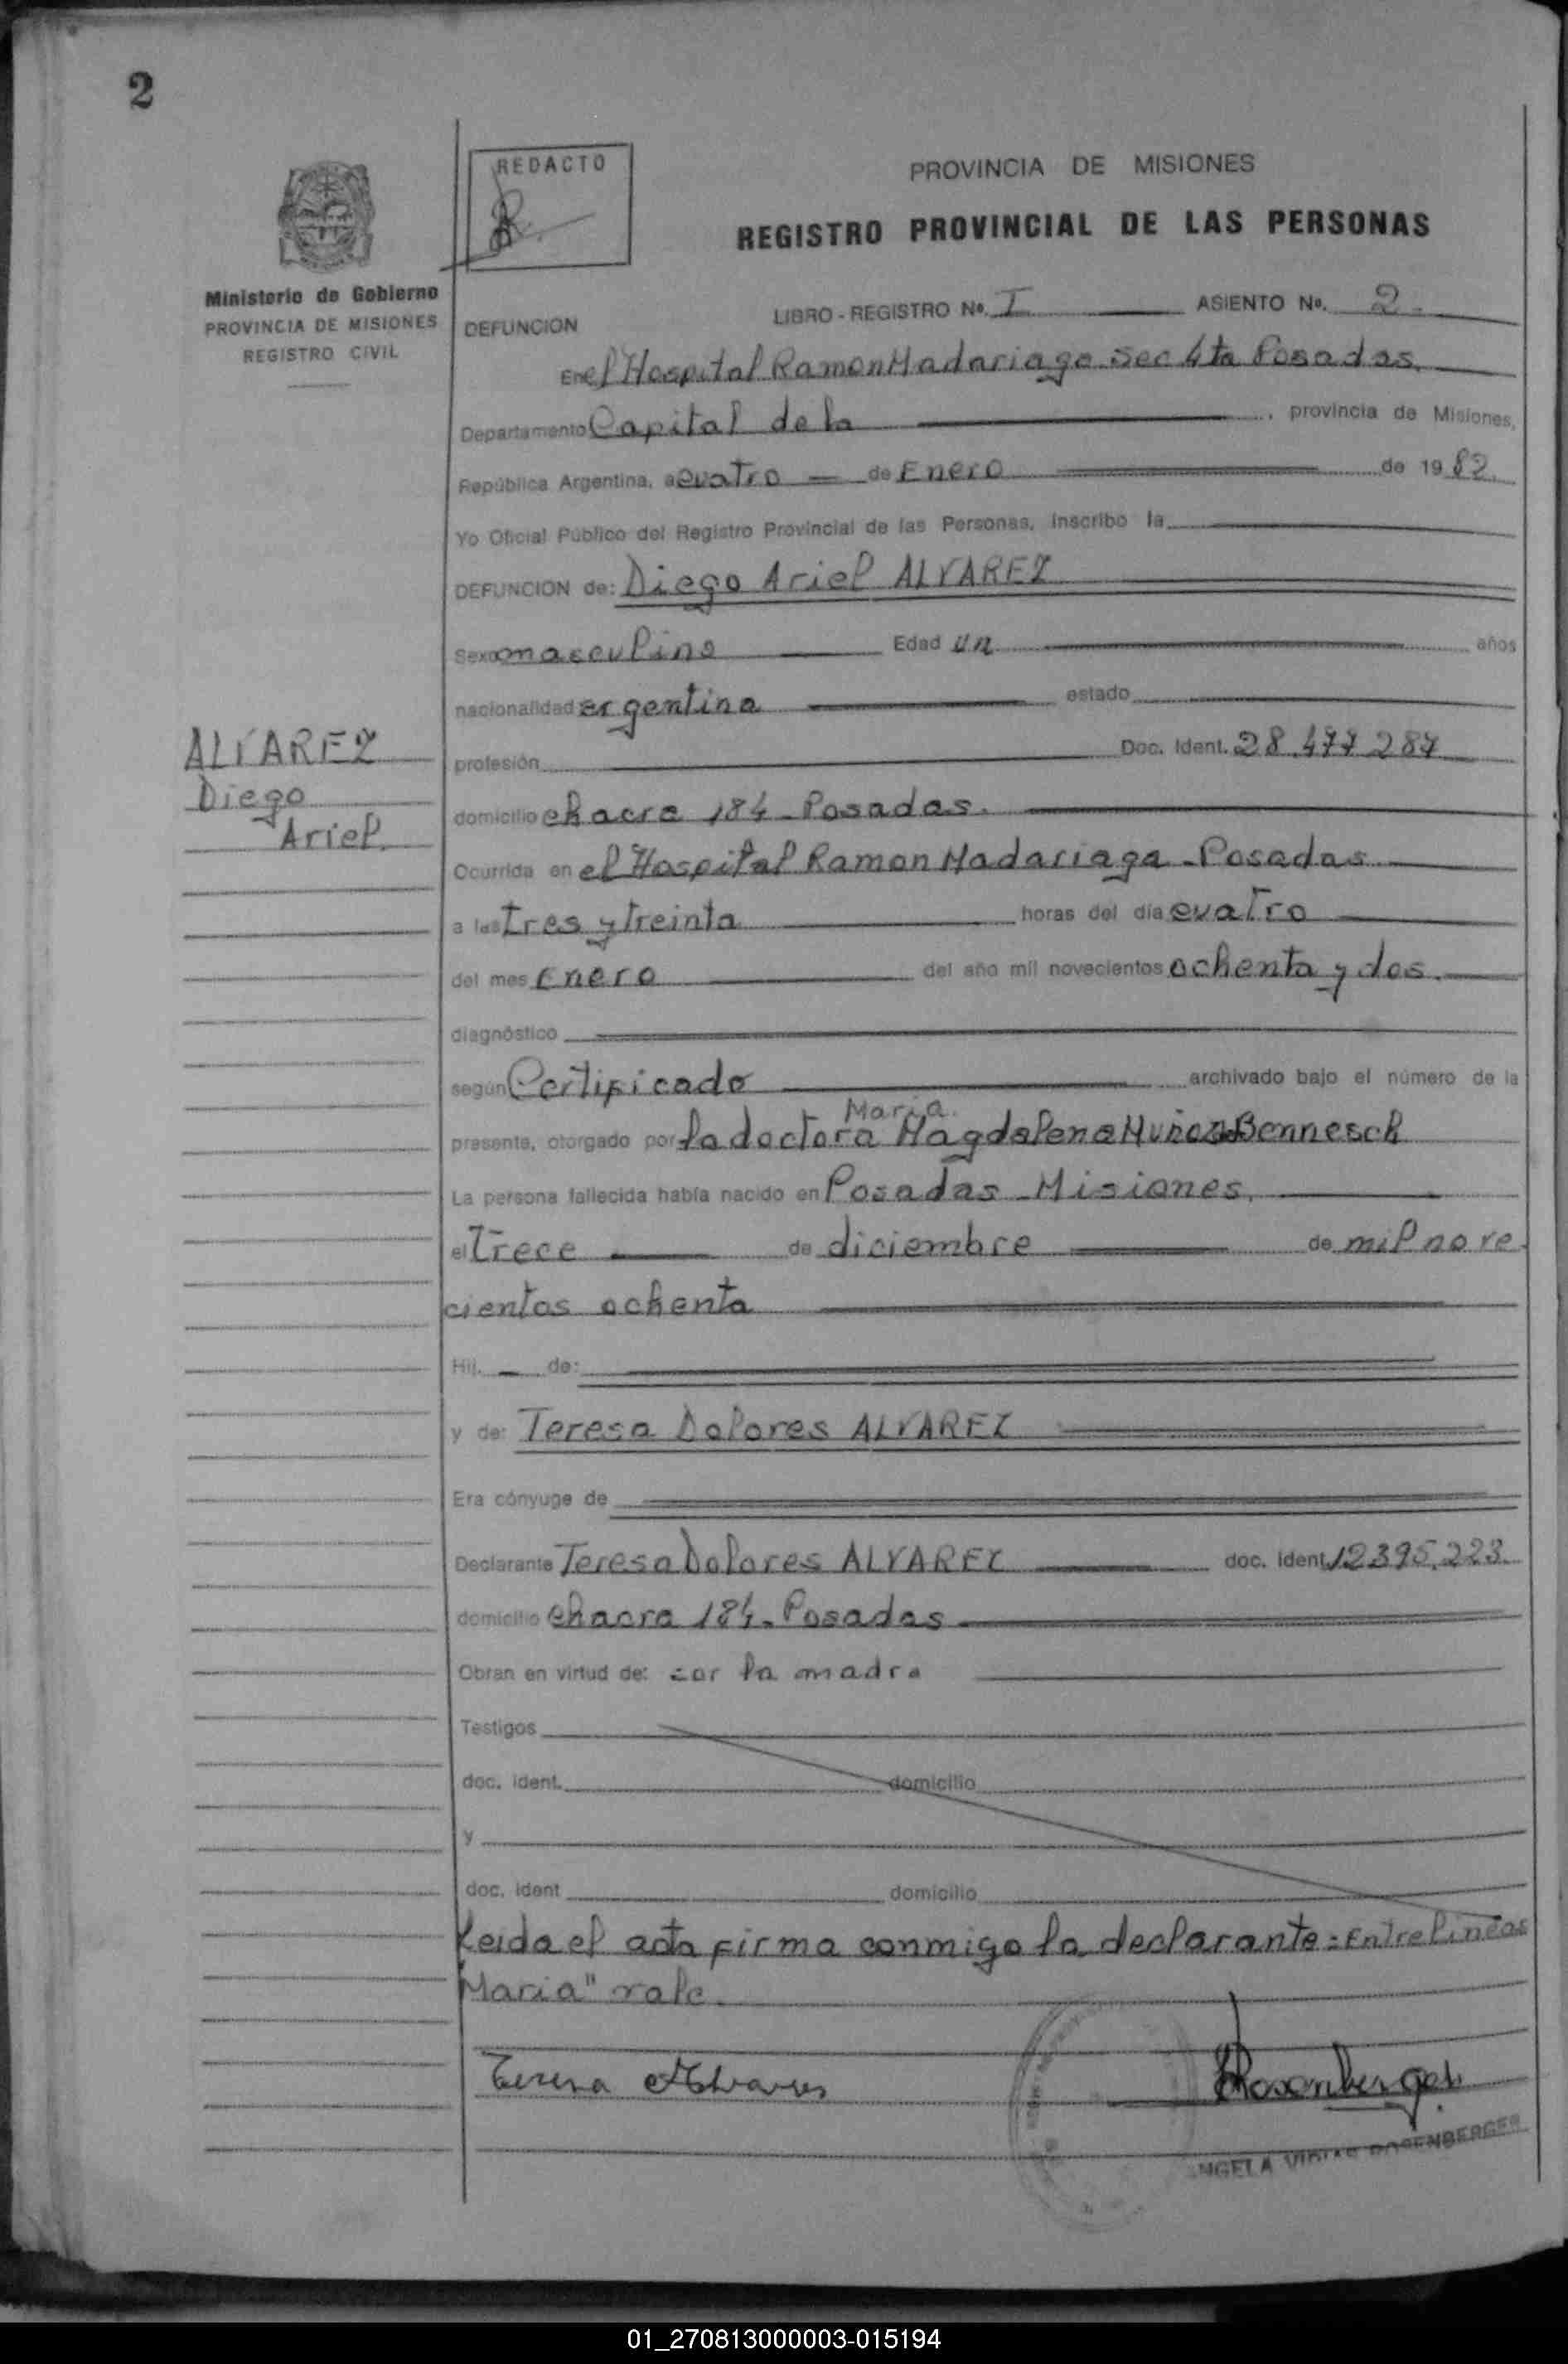 2
REDACTO
PROVINCIA DE MISIONES
REGISTRO PROVINCIAL DE LAS PERSONAS
Ministerio de Gobierno
PROVINCIA DE MISIONES
REGISTRO CIVIL
DEFUNCION
LIBRO - REGISTRO Nº. I ASIENTO Nº. 2.
En el Hospital Ramon Madariaga Sec 4ta Posadas.
Departamento Capital de la , provincia de Misiones,
República Argentina, a cuatro de Enero de 1982.
Yo Oficial Público del Registro Provincial de las Personas, inscribo la
DEFUNCION de: Diego Ariel ALVAREZ
Sexo masculino Edad un años
nacionalidad argentina estado
ALVAREZ
Diego
Ariel.
profesión Doc. Ident. 28.477 287
domicilio chacra 184 - Posadas.
Ocurrida en el Hospital Ramon Madariaga - Posadas
a las tres y treinta horas del día cuatro
del mes Enero del año mil novecientos ochenta y dos.
diagnóstico
según Certificado archivado bajo el número de la
Maria.
presente, otorgado por la doctora Magdalena Muñoz Bennesch
La persona fallecida había nacido en Posadas - Misiones.
el trece de diciembre de mil nove
cientos ochenta
Hij. de:
y de: Teresa Dolores ALVAREZ
Era cónyuge de
Declarante Teresa Dolores ALVAREZ doc. ident. 12.395.223.
domicilio chacra 184 - Posadas
Obran en virtud de: ser la madre
Testigos
doc. ident. domicilio
y
doc. ident domicilio
Leida el acta firma conmigo la declarante: Entre lineas
"Maria" vale.
Teresa Alvares
Rosenberger
ROSENBERGER
01_270813000003-015194